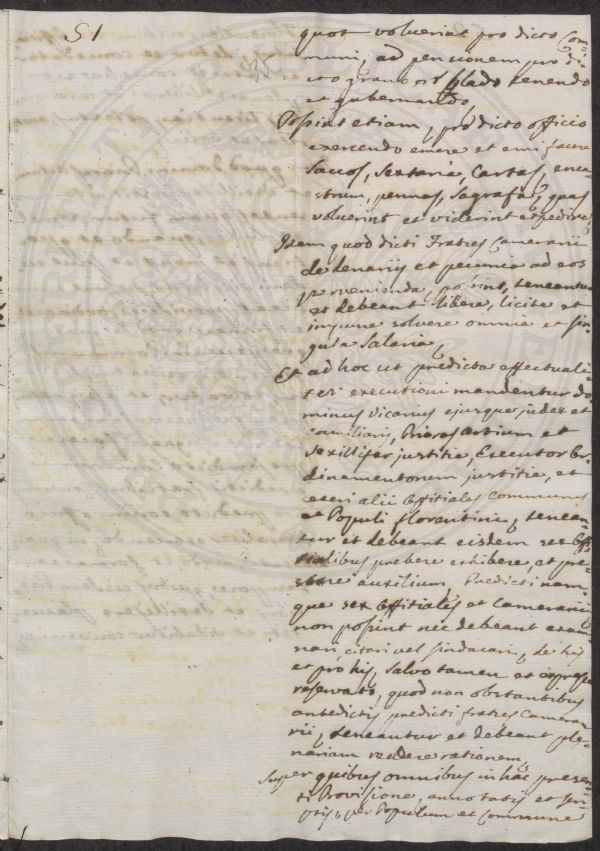 51
quot voluerint pro dicto Com=
muni, ad pensionem pro di=
cto grano et blado tenendo
et gubernando,
Possint etiam, pro dicto officio
exercendo emere et emi facere
Saccos, Sextaria, Cartas, enca=
strum, pennas, quas
voluerint et viderint expedire,
Item quod dicti Fratres Camerarii
de denarijs et pecunia ad eos
pervenienda, possint, teneantur
et debeant libere, licite et
impune solvere omnia et sin
gula Salaria,
Et ad hoc ut predicta effectuali=
ter executioni mandentur do=
minus Vicarius ejusque judex et
familiaris, Priores Artium et
Vexillifer justitie, Executor Or=
dinamentorum justitie, et
ceteri alii Offitiales Communis
et Populi florentini, tenean=
tur et debeant eisdem sex Offi=
tialibus prebere exhibere, et pre=
stare auxilium, Predicti nam=
que sex Offitiales et Camerarii
non possint nec debeant exami
nari, citari vel sindacari, de his
et pro his, salvo tamen et expresse
reservato, quod non obstantibus
antedictis predicti fratres Camera
rii, teneantur et debeant ple=
nariam reddere rationem,
Super quibus omnibus in hac presen
ti Provisione, annotatis et scri
ptis, per Populum et Commune